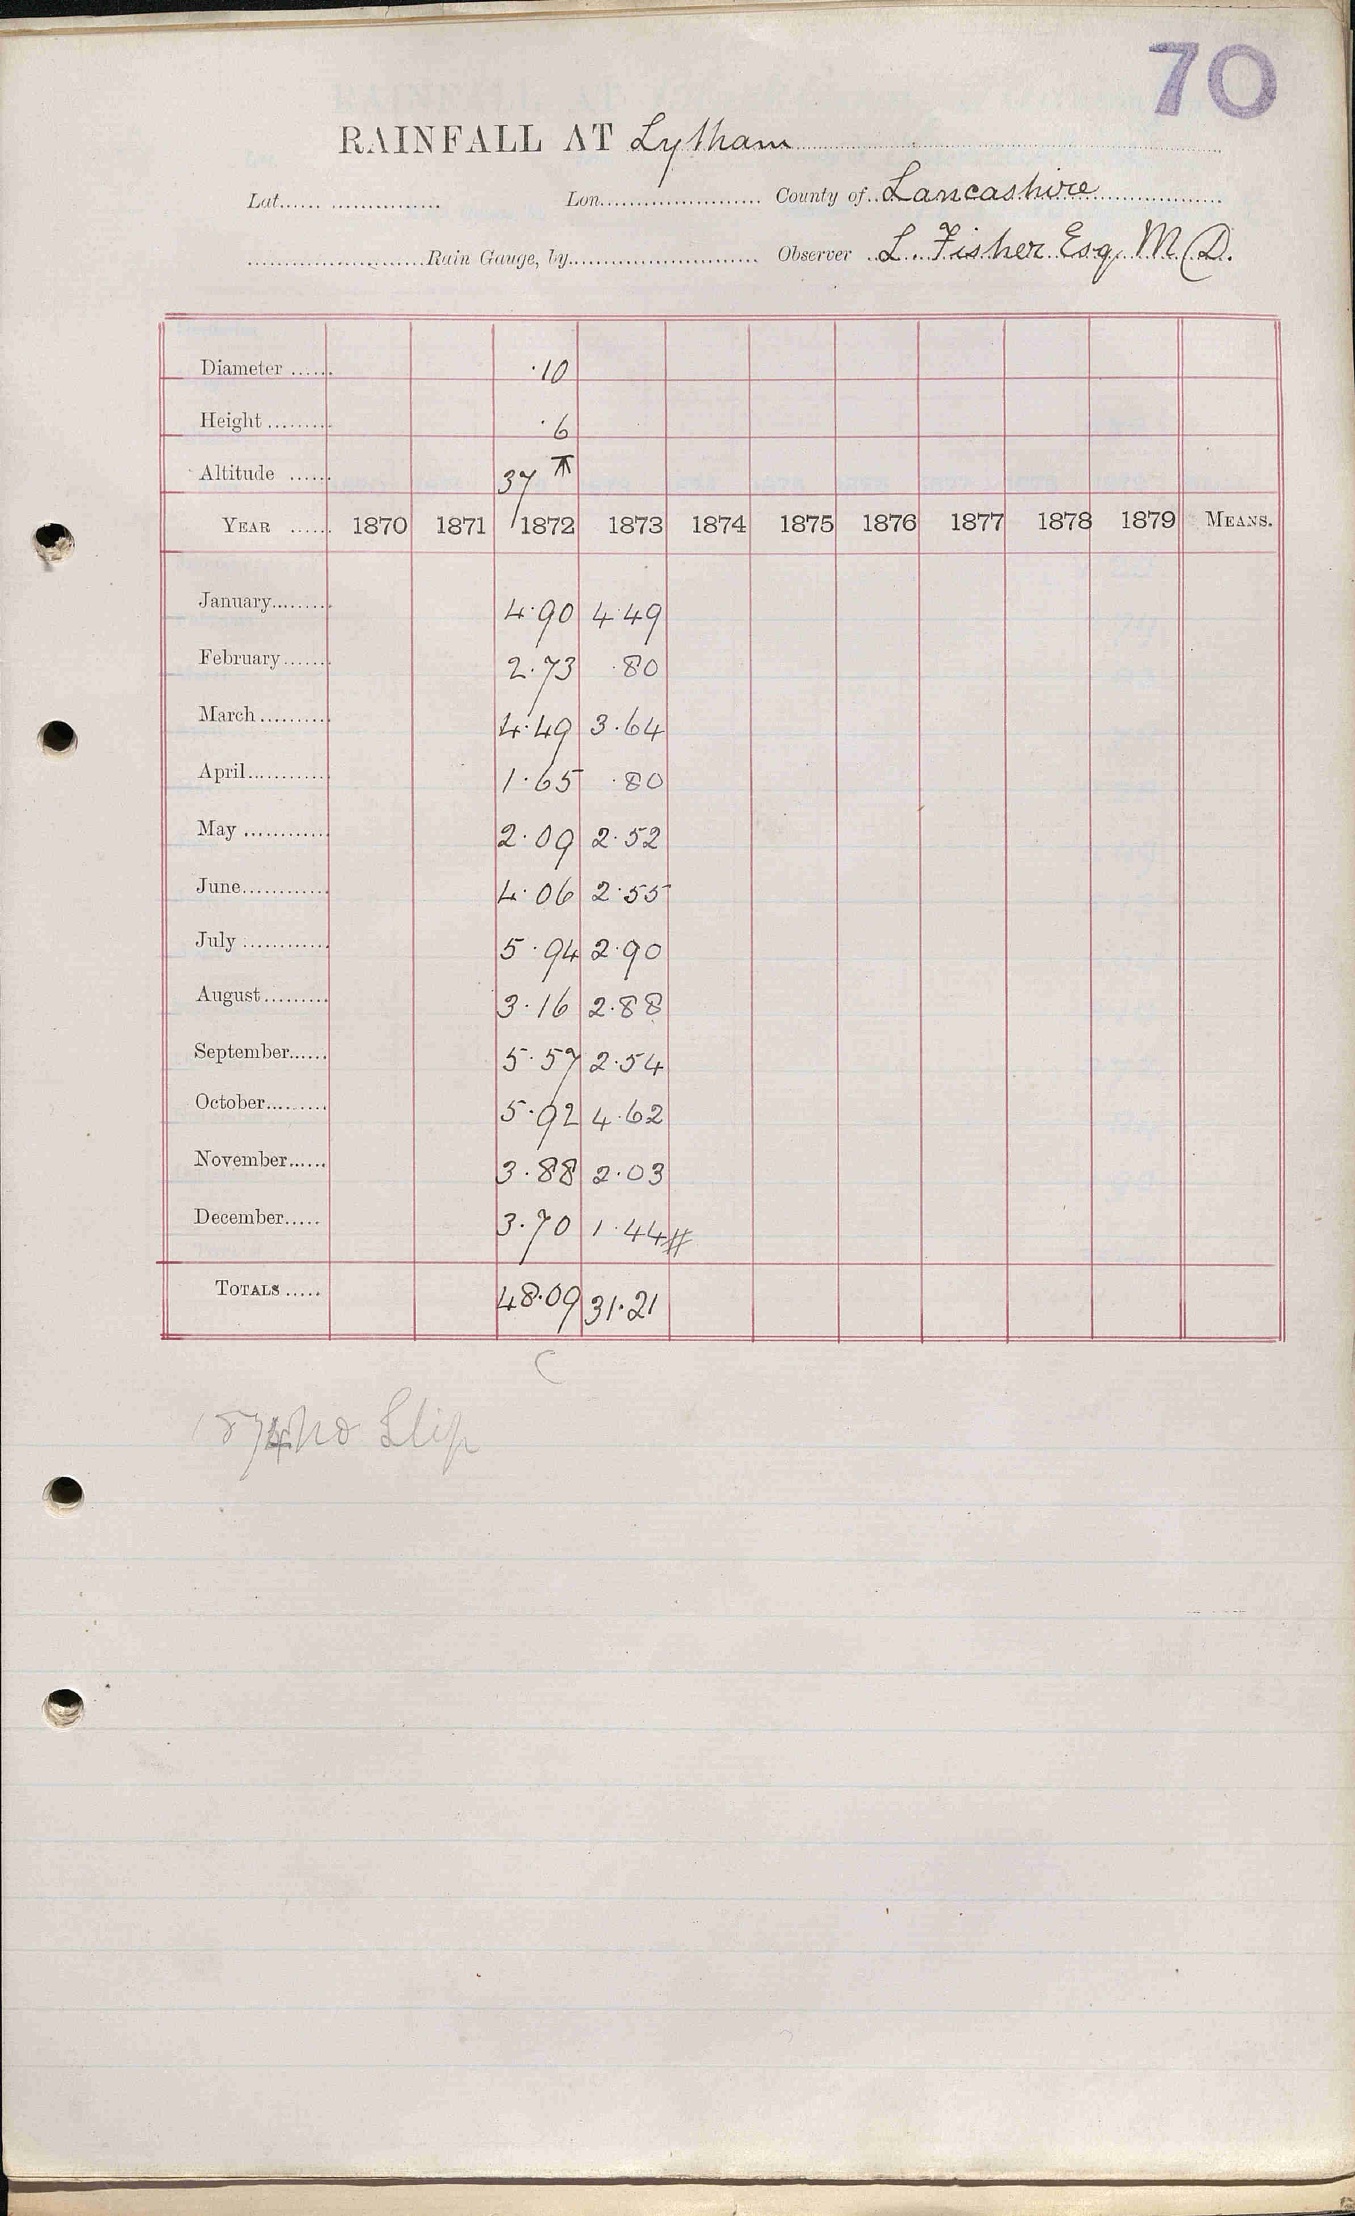 70
RAINFALL AT Lytham
Lat. Lon. County of Lancashire
Rain Gauge, by Observer L. Fisher Esq. M.D.
Diameter ·10
Height ·6
Altitude 37
YEAR 1870 1871 1872 1873 1874 1875 1876 1877 1878 1879 MEANS.
January 4·90 4·49
February 2·73 ·80
March 4·49 3·64
April 1·65 ·80
May 2·09 2·52
June 4·06 2·55
July 5·94 2·90
August 3·16 2·88
September 5·57 2·54
October 5·92 4·62
November 3·88 2·03
December 3·70 1·44 #
TOTALS 48·09 31·21
C
1874 no Slip